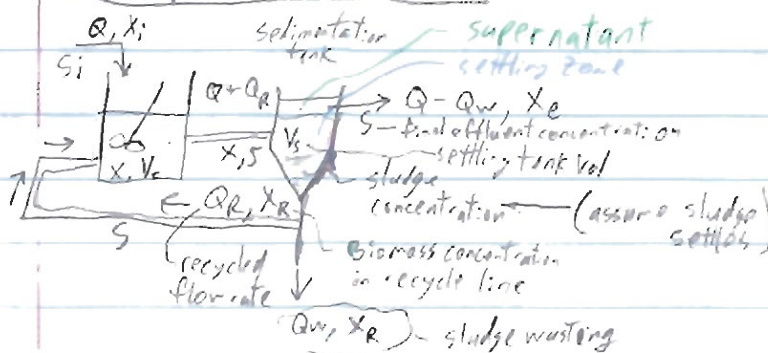 Q, Xi
Si
sedimentation
tank
supernatant
settling zone
Q+QR
Q-Qw, Xe
S-final effluent concentration
X, S
Vs
settling tank vol
X, Vc
sludge
concentration
(assume sludge
settles)
QR, XR
S
recycled
flow rate
Biomass concentration
in recycle line
Qw, XR
sludge wasting